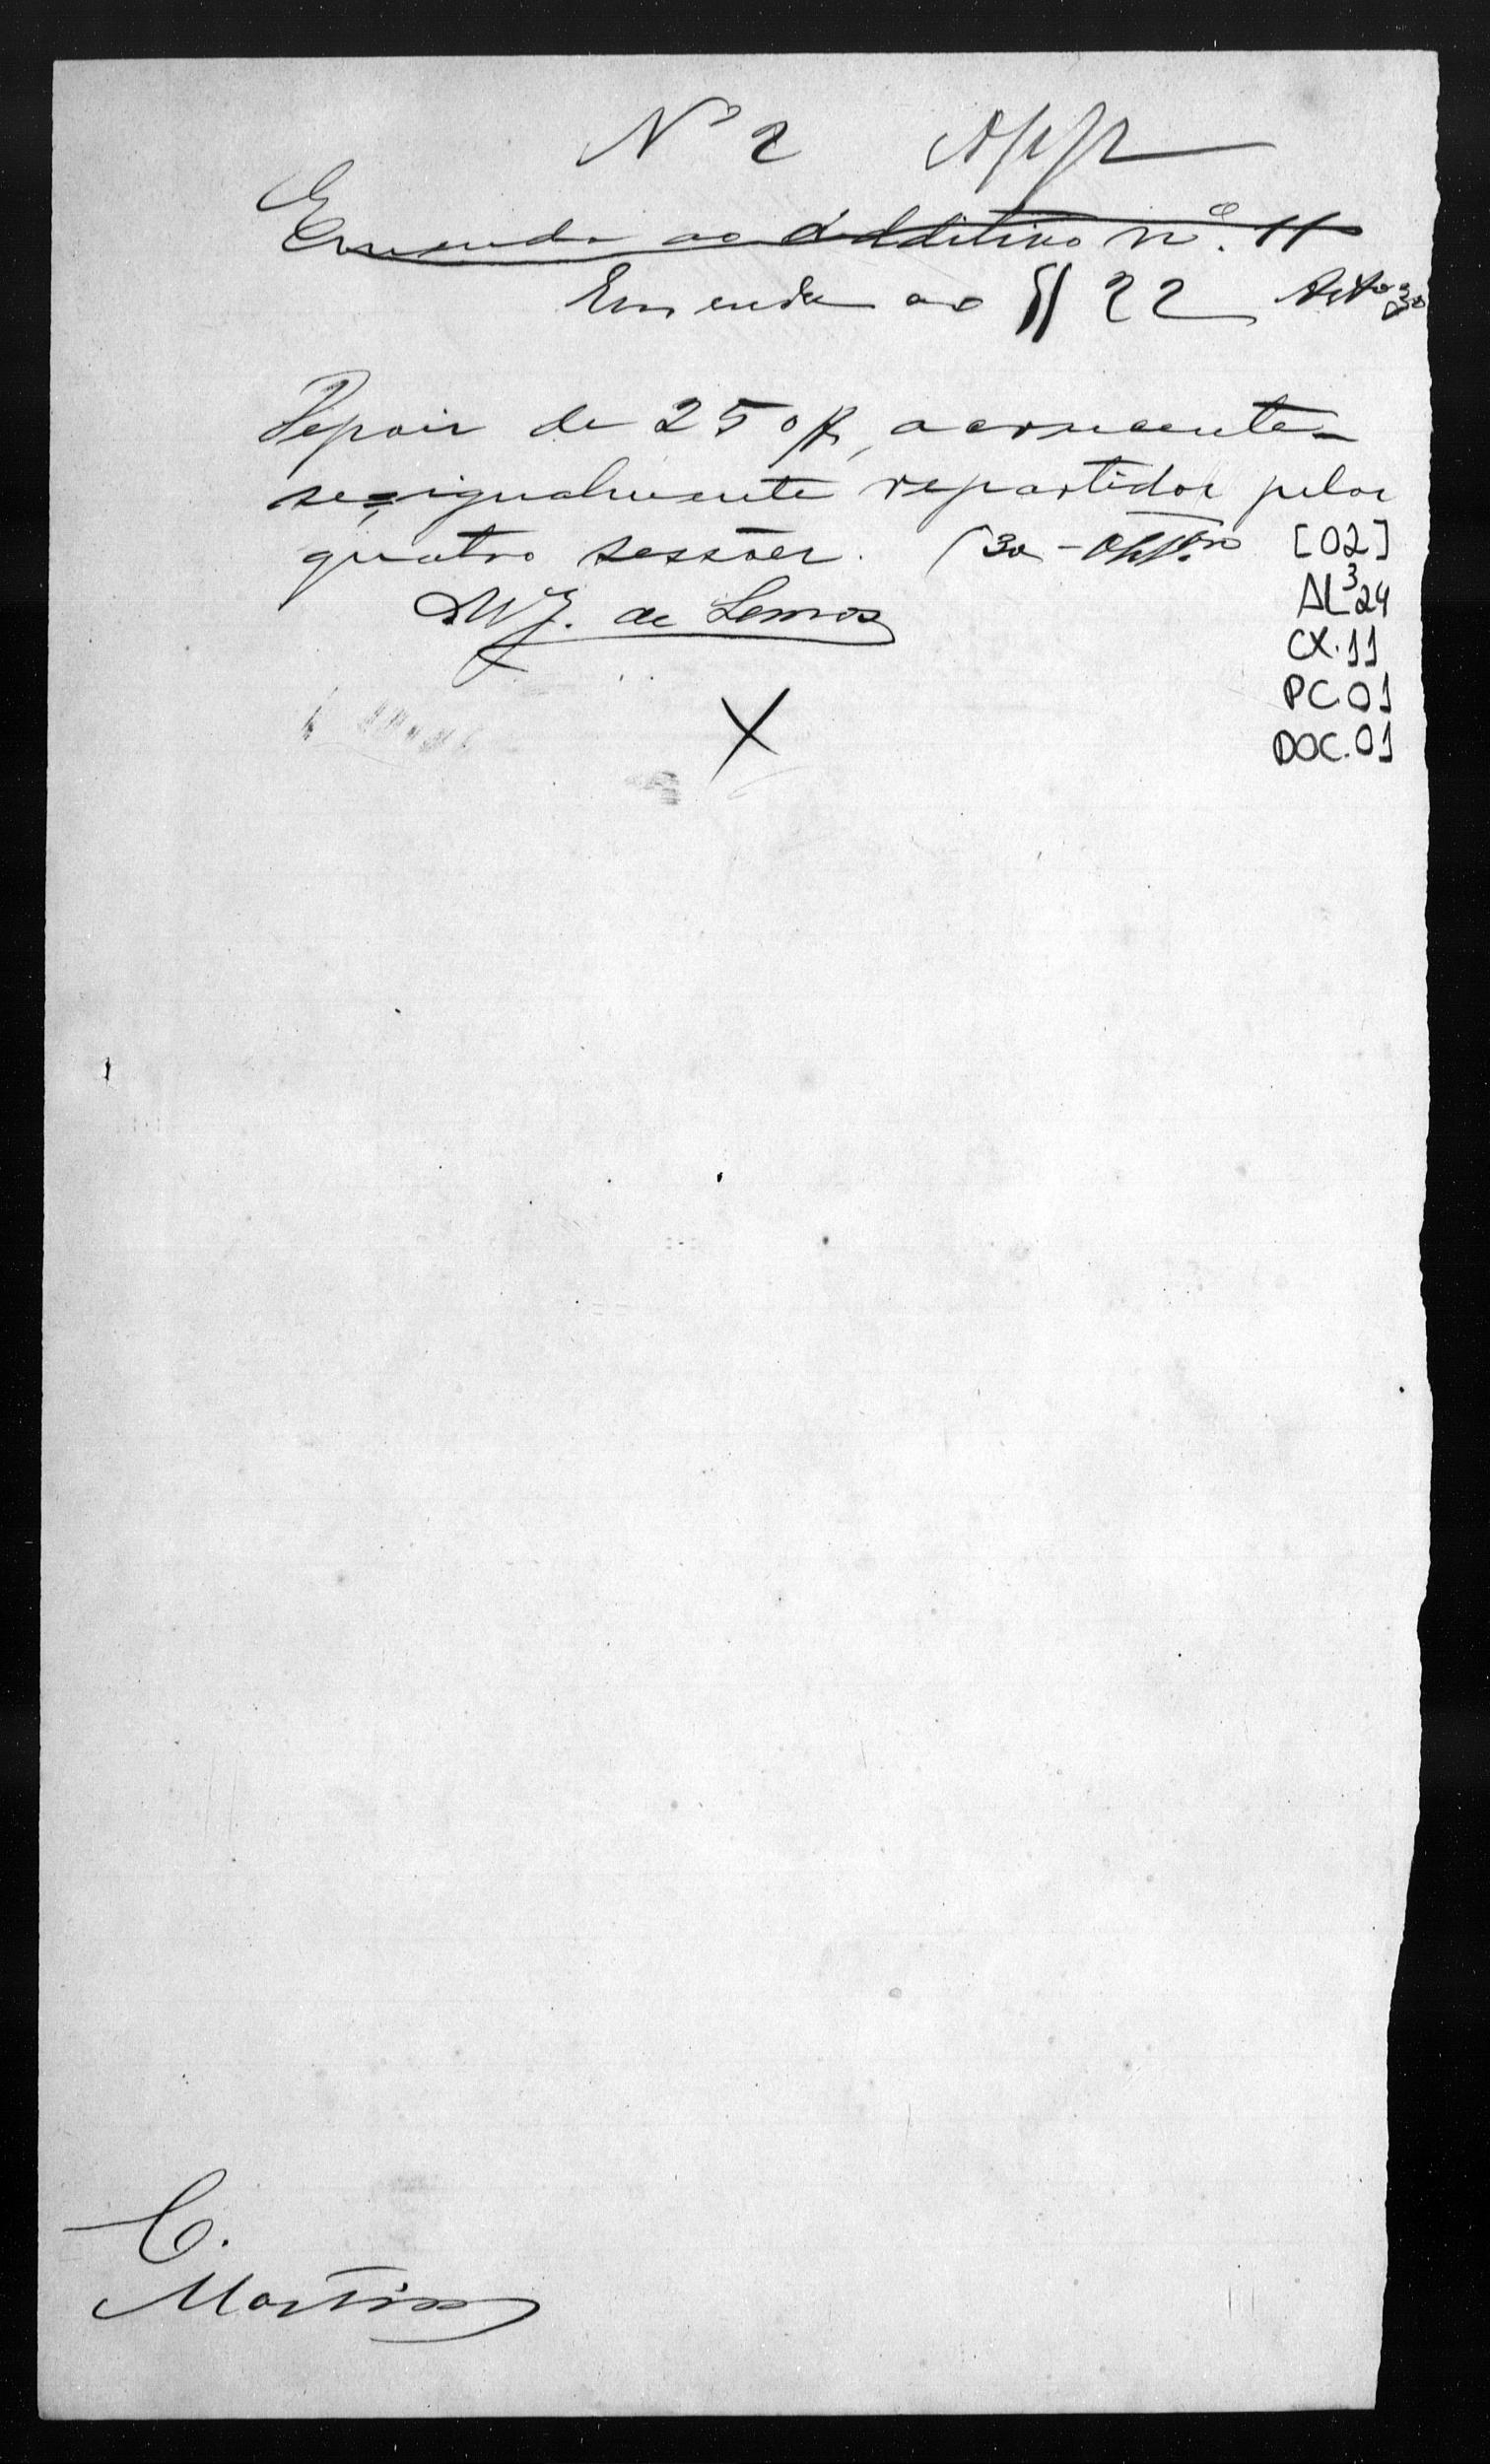 Nº 2 App
Emenda ao Additivo nº. 11
Emenda ao § 22
Depois de 250$, accrescente-
se, igualmente repartidos pelas
quatro sessões. (3a -
de Lemos
[02]
AL³24
CX.11
PC.01
DOC.01
X
C.
Martins